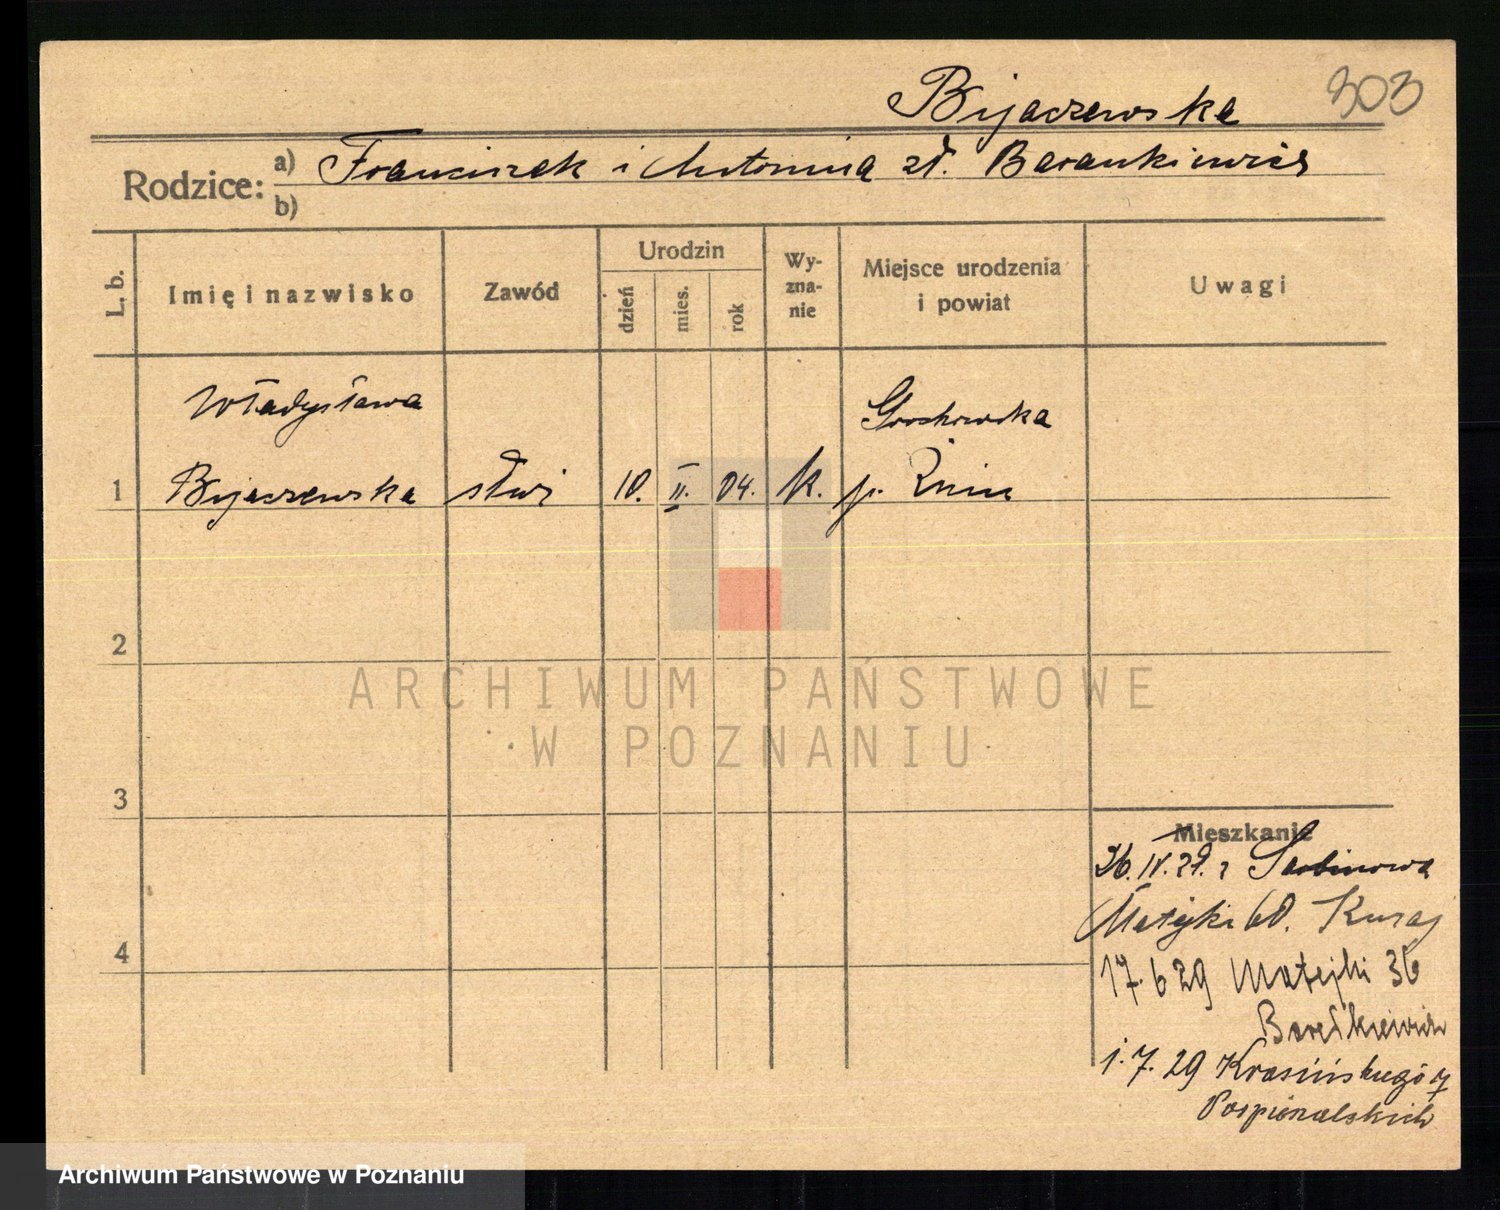 Bijaczewska 303
Rodzice: a) Franciszek i Antonina zł. Barankiewicz
b)
L. b. Imię i nazwisko Zawód Urodzin dzień mies. rok Wyznanie Miejsce urodzenia i powiat Uwagi
Władysława Grochowska
1 Bijaczewska służ 10. II. 04. k. p. Żnin
2
3
4
Mieszkanie
26. IV. 29. z Sarbinowa
Matejki 60.
17. 6 29 Matejki 36
1. 7. 29 Krasińskiego 7
ARCHIWUM PAŃSTWOWE
W POZNANIU
Archiwum Państwowe w Poznaniu